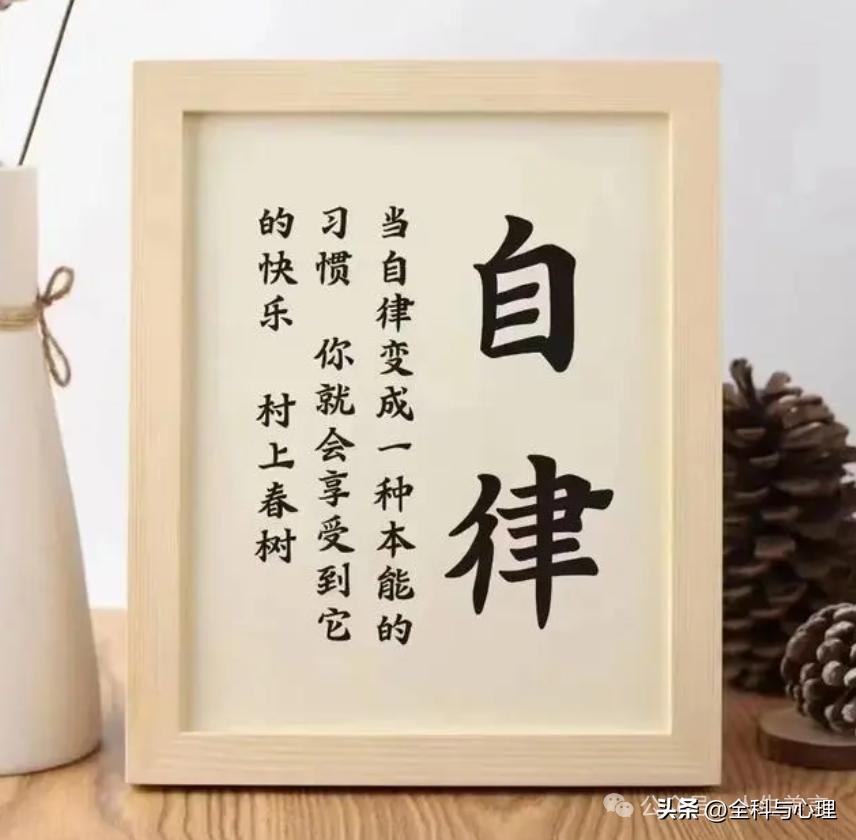 自律
当自律变成一种本能的
习惯 你就会享受到它
的快乐 村上春树
公众号
头条 @全科与心理